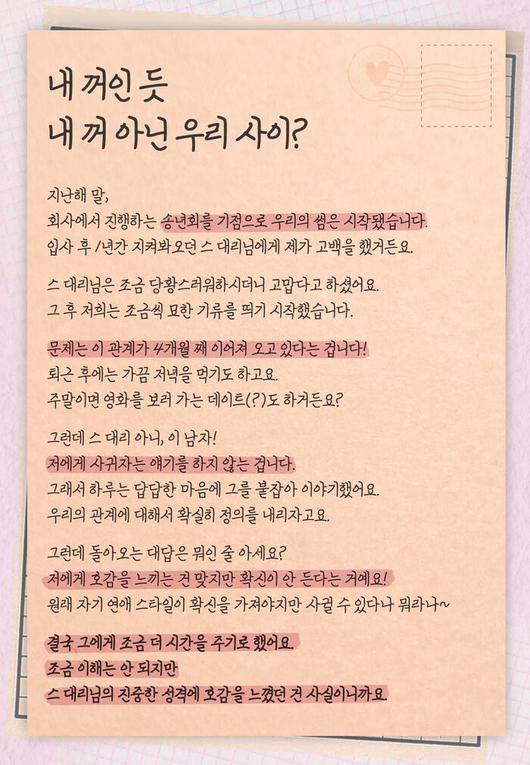 내 꺼인 듯
내 꺼 아닌 우리 사이?
지난해 말,
회사에서 진행하는 송년회를 기점으로 우리의 썸은 시작됐습니다.
입사 후 1년간 지켜봐오던 스 대리님에게 제가 고백을 했거든요.
스 대리님은 조금 당황스러워하시더니 고맙다고 하셨어요.
그 후 저희는 조금씩 묘한 기류를 띄기 시작했습니다.
문제는 이 관계가 4개월 째 이어져 오고 있다는 겁니다!
퇴근 후에는 가끔 저녁을 먹기도 하고요.
주말이면 영화를 보러 가는 데이트(?)도 하거든요?
그런데 스 대리 아니, 이 남자!
저에게 사귀자는 얘기를 하지 않는 겁니다.
그래서 하루는 답답한 마음에 그를 붙잡아 이야기했어요.
우리의 관계에 대해서 확실히 정의를 내리자고요.
그런데 돌아오는 대답은 뭐인 줄 아세요?
저에게 호감을 느끼는 건 맞지만 확신이 안 든다는 거예요!
원래 자기 연애 스타일이 확신을 가져야지만 사귈 수 있다나 뭐라나~
결국 그에게 조금 더 시간을 주기로 했어요.
조금 이해는 안 되지만
스 대리님의 진중한 성격에 호감을 느꼈던 건 사실이니까요.